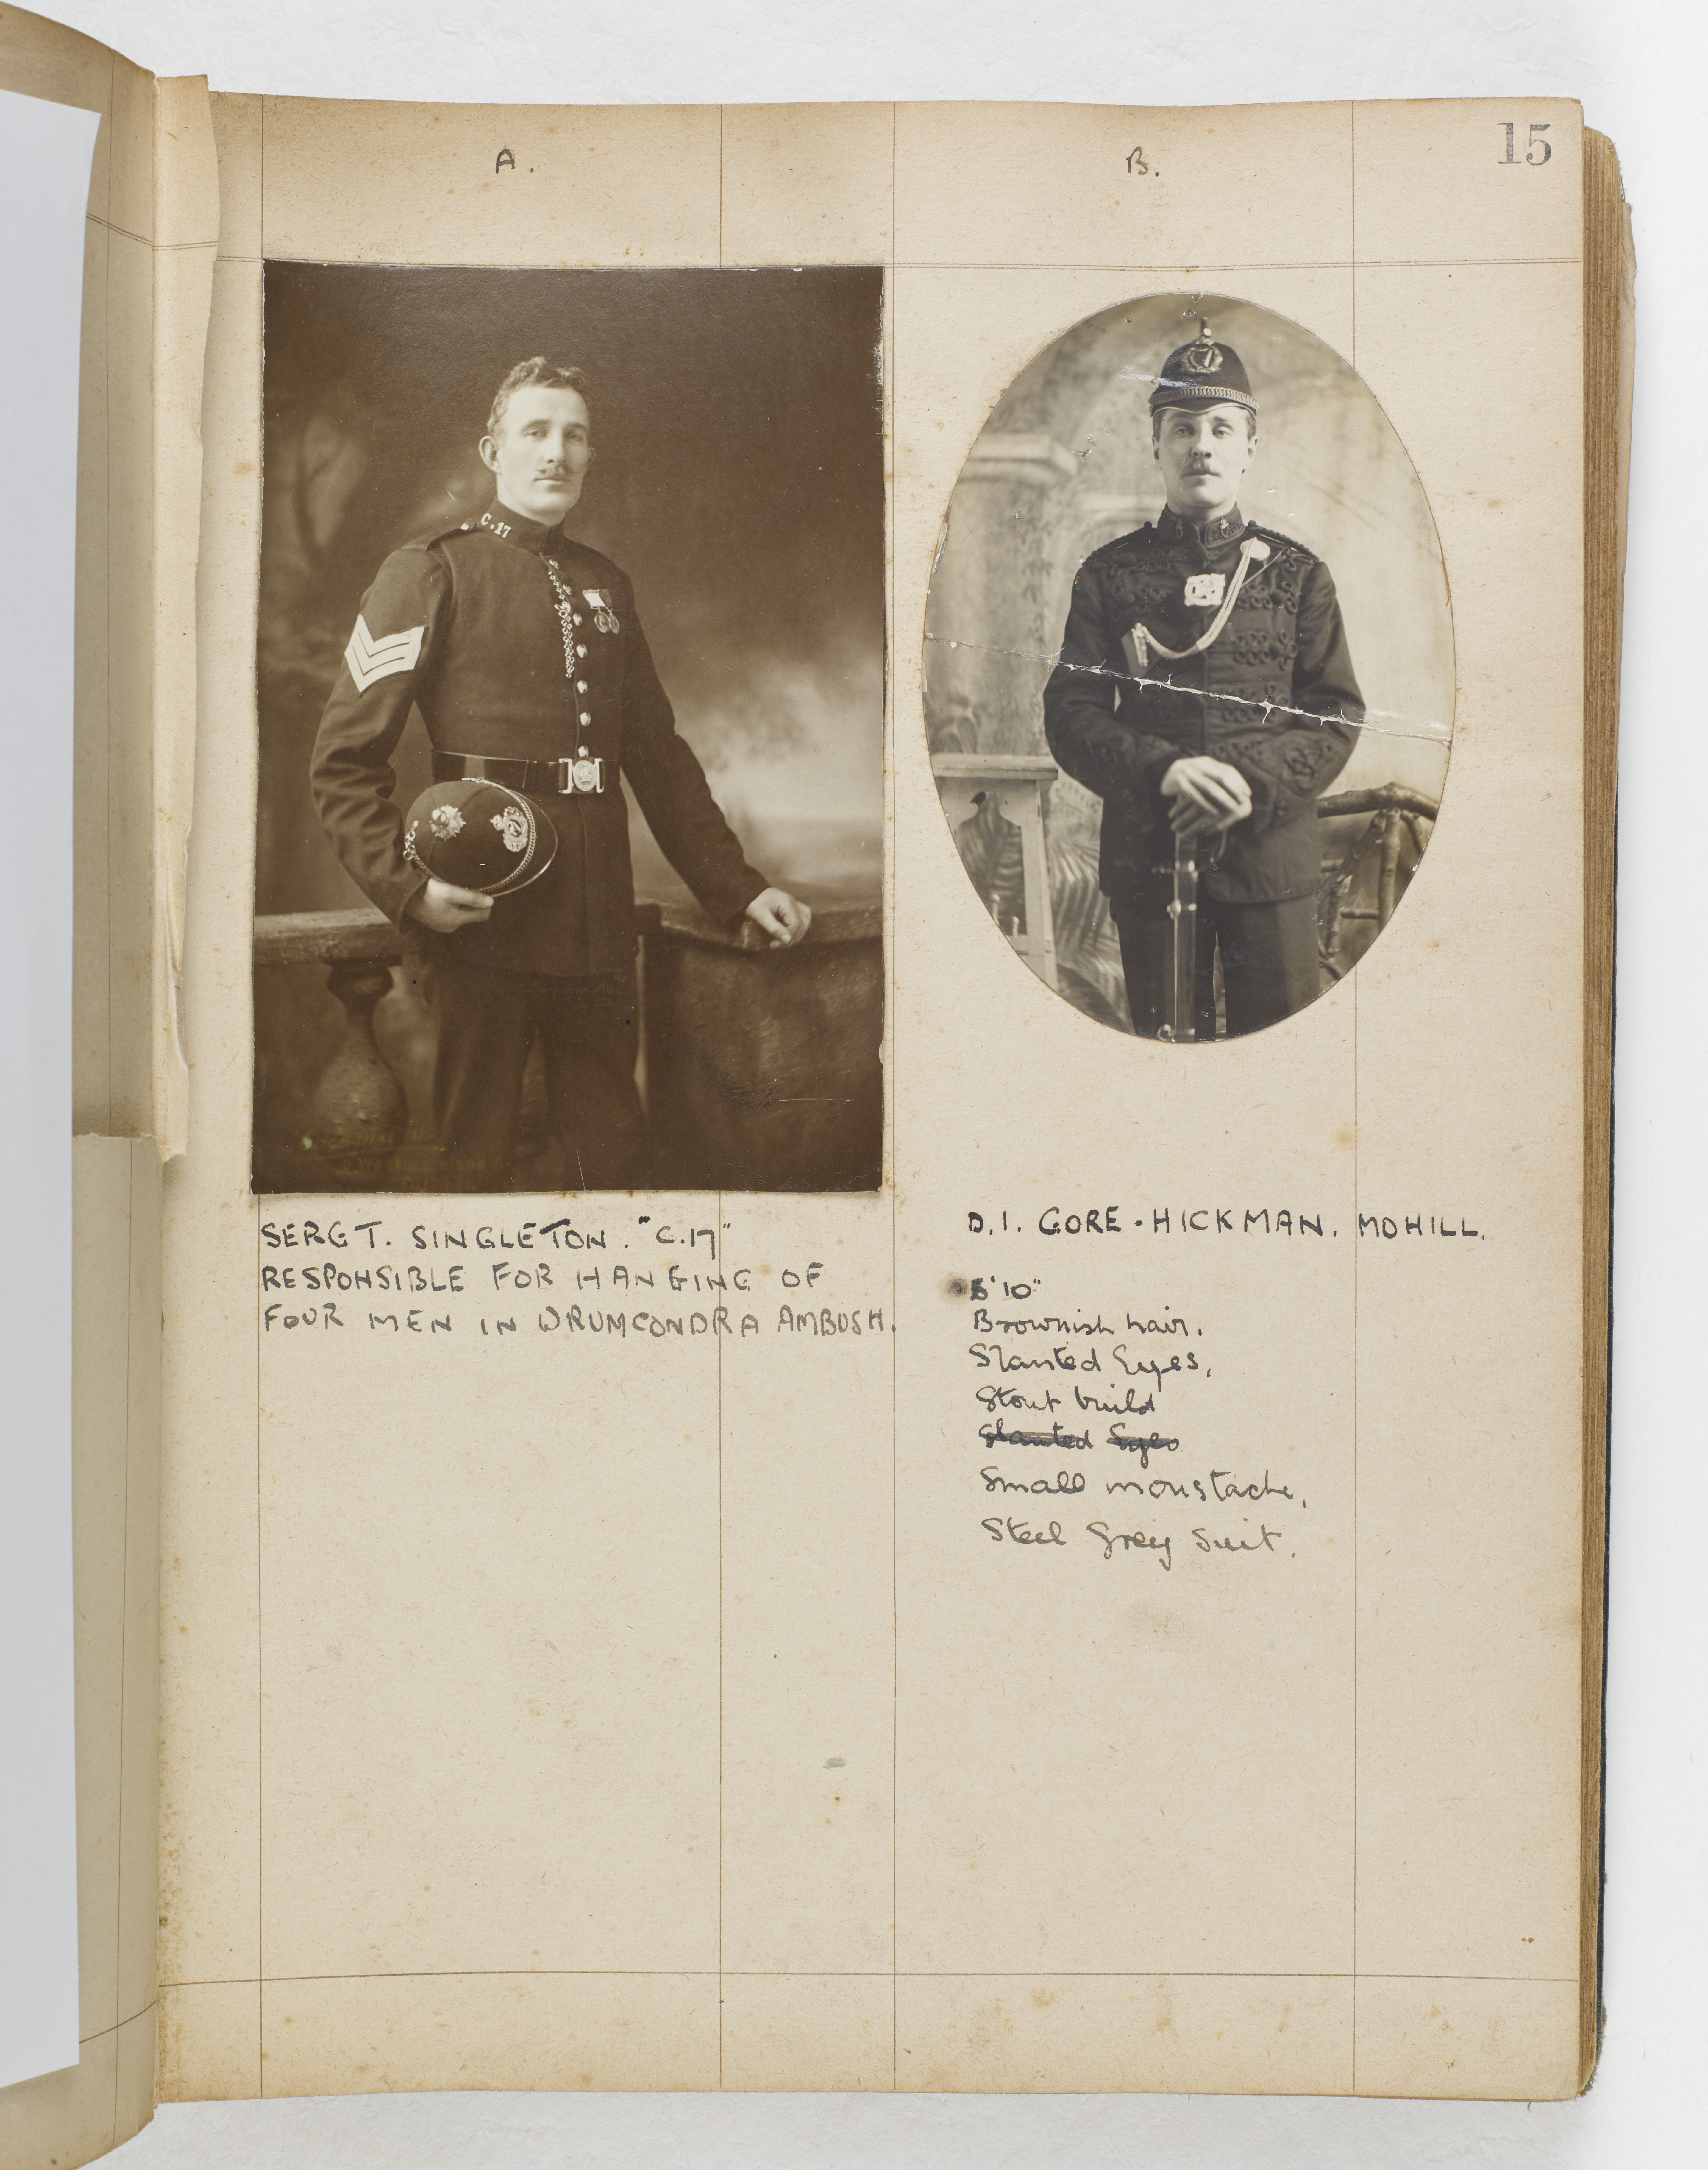 15
A.
B.
C.17
SERGT. SINGLETON. "C.17"
RESPONSIBLE FOR HANGING OF
FOUR MEN IN DRUMCONDRA AMBUSH.
D.I. GORE-HICKMAN. MOHILL.
5'10"
Brownish hair.
Slanted Eyes.
Stout build
Slanted Eyes
Small moustache.
Steel Grey Suit.